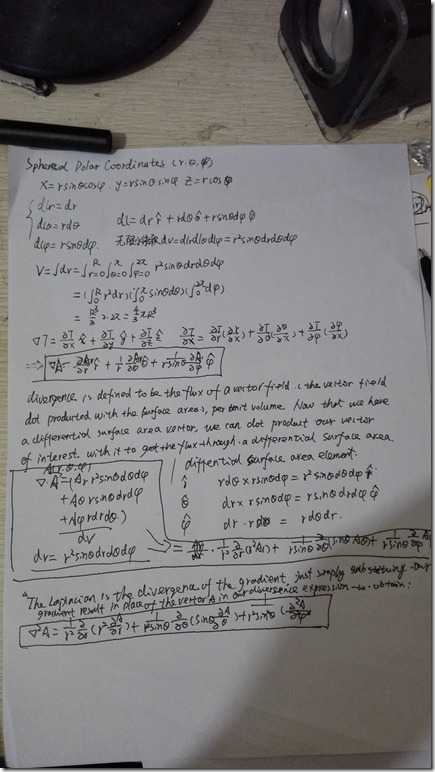 Spherical Polar Coordinates (r,θ,φ)
x=rsinθcosφ. y=rsinθsinφ z=rcosθ
dlr=dr
dlθ=rdθ dl=dr r̂+rdθ θ̂+rsinθdφ φ̂
dlφ=rsinθdφ. dv=dlrdlθdlφ=r²sinθdrdθdφ
V=∫dv=∫_{r=0}^{R}∫_{θ=0}^{π}∫_{φ=0}^{2π} r²sinθdrdθdφ
=(∫_0^R r²dr)(∫_0^π sinθdθ)(∫_0^{2π}dφ)
=R³/3·2·2π=4/3πR³
∇T=∂T/∂x x̂+∂T/∂y ŷ+∂T/∂z ẑ ∂T/∂x=∂T/∂r(∂r/∂x)+∂T/∂θ(∂θ/∂x)+∂T/∂φ(∂φ/∂x)
=> ∇A=∂A/∂r r̂+1/r ∂A/∂θ θ̂+1/rsinθ ∂A/∂φ φ̂
divergence is defined to be the flux of a vector field (the vector field
dot producted with the surface area), per unit volume. Now that we have
a differential surface area vector, we can dot product our vector
of interest with it to get the flux through a differential surface area
differential surface area element.
r̂ rdθ×rsinθdφ=r²sinθdθdφ r̂
θ̂ dr×rsinθdφ=rsinθdrdφ
φ̂ dr·rdθ = rdθdr.
∇·A=(Ar r²sinθdθdφ
+Aθrsinθdrdφ
+Aφrdrdθ)
dv
dv=r²sinθdrdθdφ
= 1/r² ∂/∂r(r²Ar)+1/rsinθ ∂/∂θ(sinθAθ)+1/rsinθ ∂/∂φ
"The Laplacian is the divergence of the gradient, just simply substituting our
gradient result in place of the vector A in our divergence expression to obtain:
∇²A=1/r² ∂/∂r(r²∂A/∂r)+1/r²sinθ ∂/∂θ(sinθ∂A/∂θ)+1/r²sin²θ(∂²A/∂φ²)